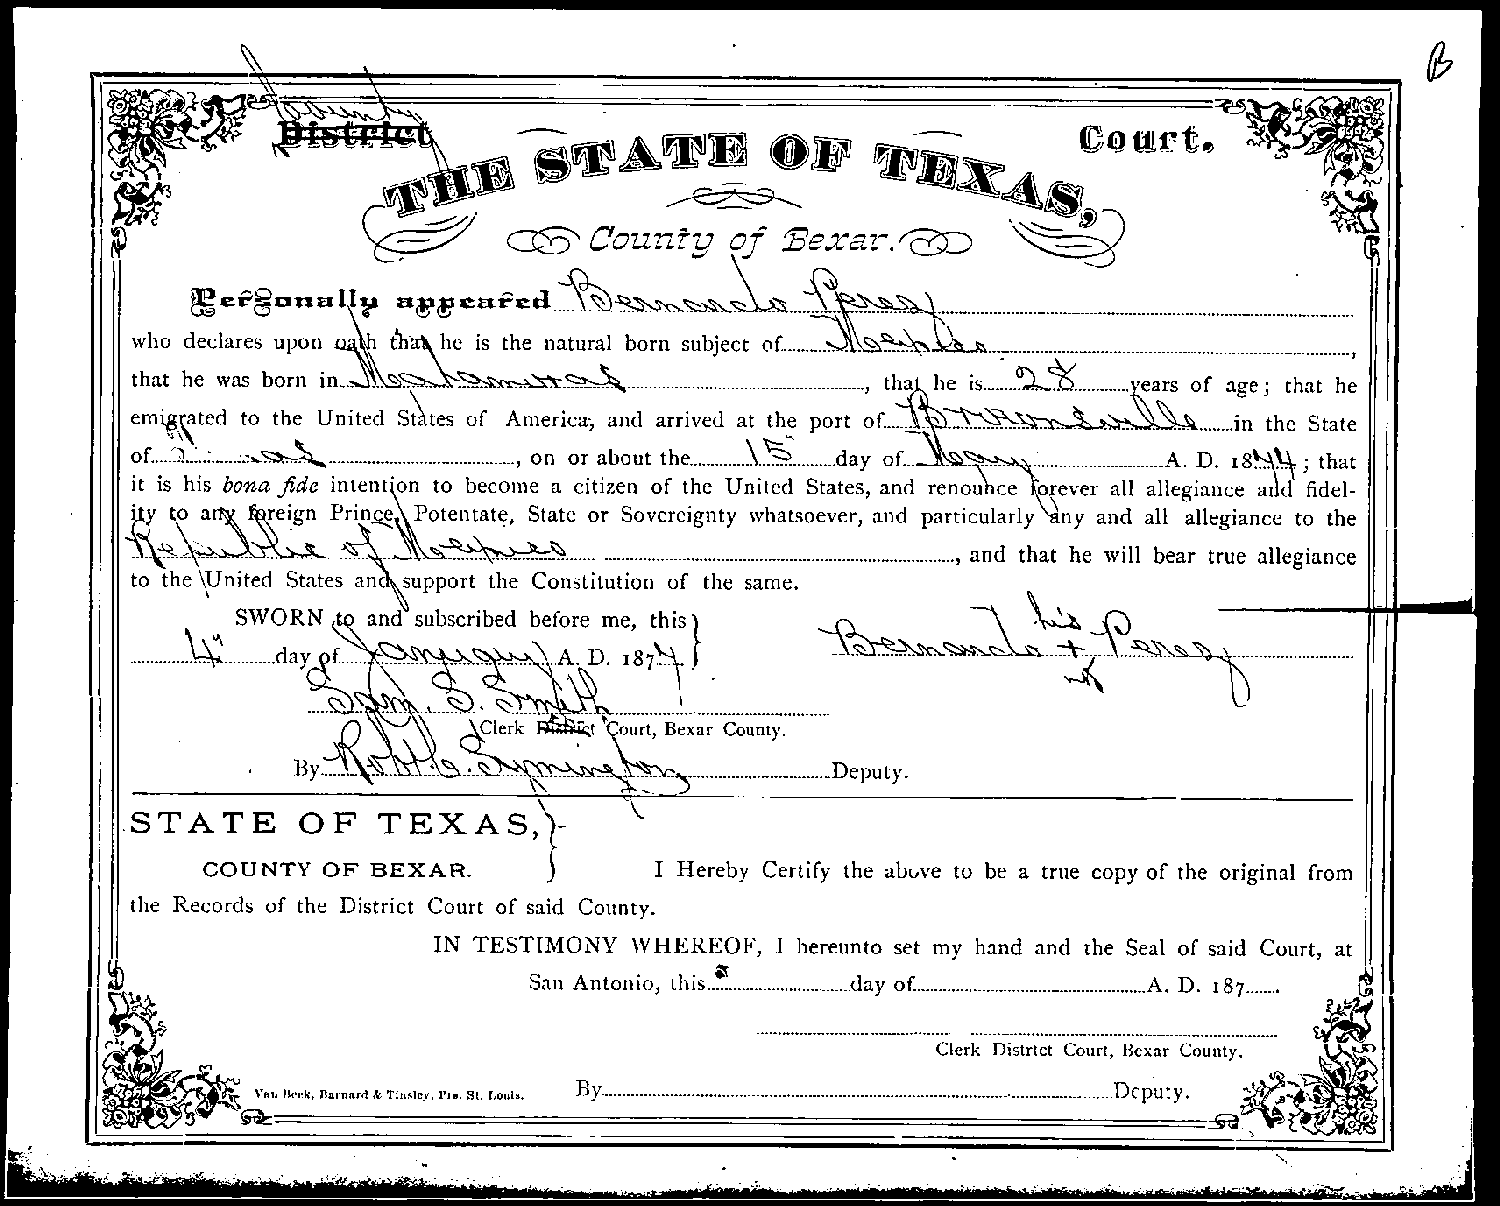 B
County
District Court.
THE STATE OF TEXAS,
County of Bexar.
Personally appeared Bernardo Perez
who declares upon oath that he is the natural born subject of Mexico,
that he was born in Matamoras, that he is 28 years of age; that he
emigrated to the United States of America, and arrived at the port of Brownsville in the State
of Texas, on or about the 15 day of May A. D. 1844; that
it is his bona fide intention to become a citizen of the United States, and renounce forever all allegiance and fidel-
ity to any foreign Prince, Potentate, State or Sovereignty whatsoever, and particularly any and all allegiance to the
Republic of Mexico, and that he will bear true allegiance
to the United States and support the Constitution of the same.
SWORN to and subscribed before me, this
4" day of January A. D. 187
his
Bernardo + Perez
Sam. S. Smith
Clerk District Court, Bexar County.
By Robt C. Symington Deputy.
STATE OF TEXAS,
COUNTY OF BEXAR.
I Hereby Certify the above to be a true copy of the original from
the Records of the District Court of said County.
IN TESTIMONY WHEREOF, I hereunto set my hand and the Seal of said Court, at
San Antonio, this day of A. D. 187
Clerk District Court, Bexar County.
Van Beek, Barnard & Tinsley, Prs. St. Louis.
By Deputy.